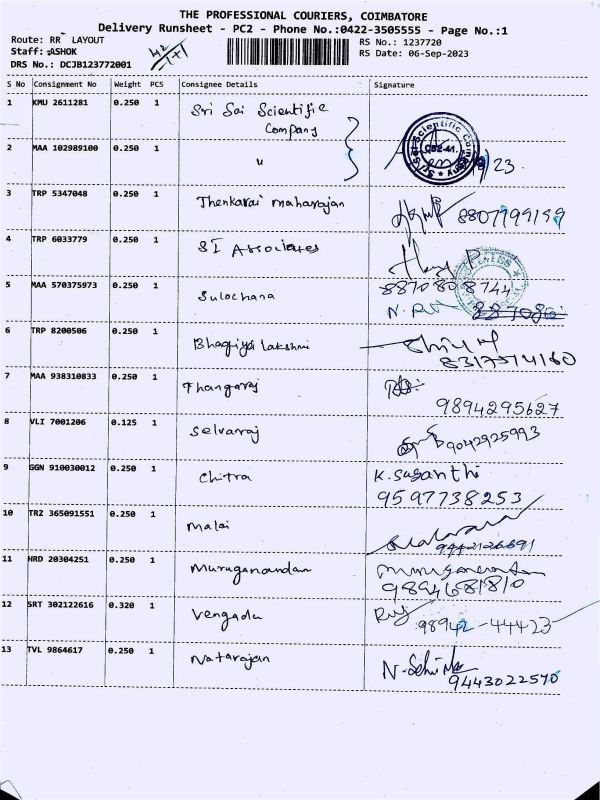 THE PROFESSIONAL COURIERS, COIMBATORE
Delivery Runsheet - PC2 - Phone No.:0422-3505555 - Page No.:1
Route: RR LAYOUT
RS No.: 1237720
Staff: ASHOK
RS Date: 06-Sep-2023
DRS No.: DCJB123772001
S No Consignment No Weight PCS Consignee Details Signature
1 KMU 2611281 0.250 1 Sri Sai Scientific
Company
2 MAA 102989100 0.250 1 "
3 TRP 5347048 0.250 1 Thenkarai maharajan
8807799199
4 TRP 6033779 0.250 1 SI Associates
5 MAA 570375973 0.250 1 Sulochana
8870808744
6 TRP 8200506 0.250 1 Bhagiya Lakshmi
8317514160
7 MAA 938310833 0.250 1 Thangaraj
9894295627
8 VLI 7001206 0.125 1 Selvaraj 9042925993
9 GGN 910030012 0.250 1 Chitra K. Suganthi
9597738253
10 TRZ 365091551 0.250 1 Malai
11 HRD 20304251 0.250 1 Muruganandan
9894681810
12 SRT 302122616 0.320 1 Vengadu
98942-44423
13 TVL 9864617 0.250 1 Natarajan
9443022570